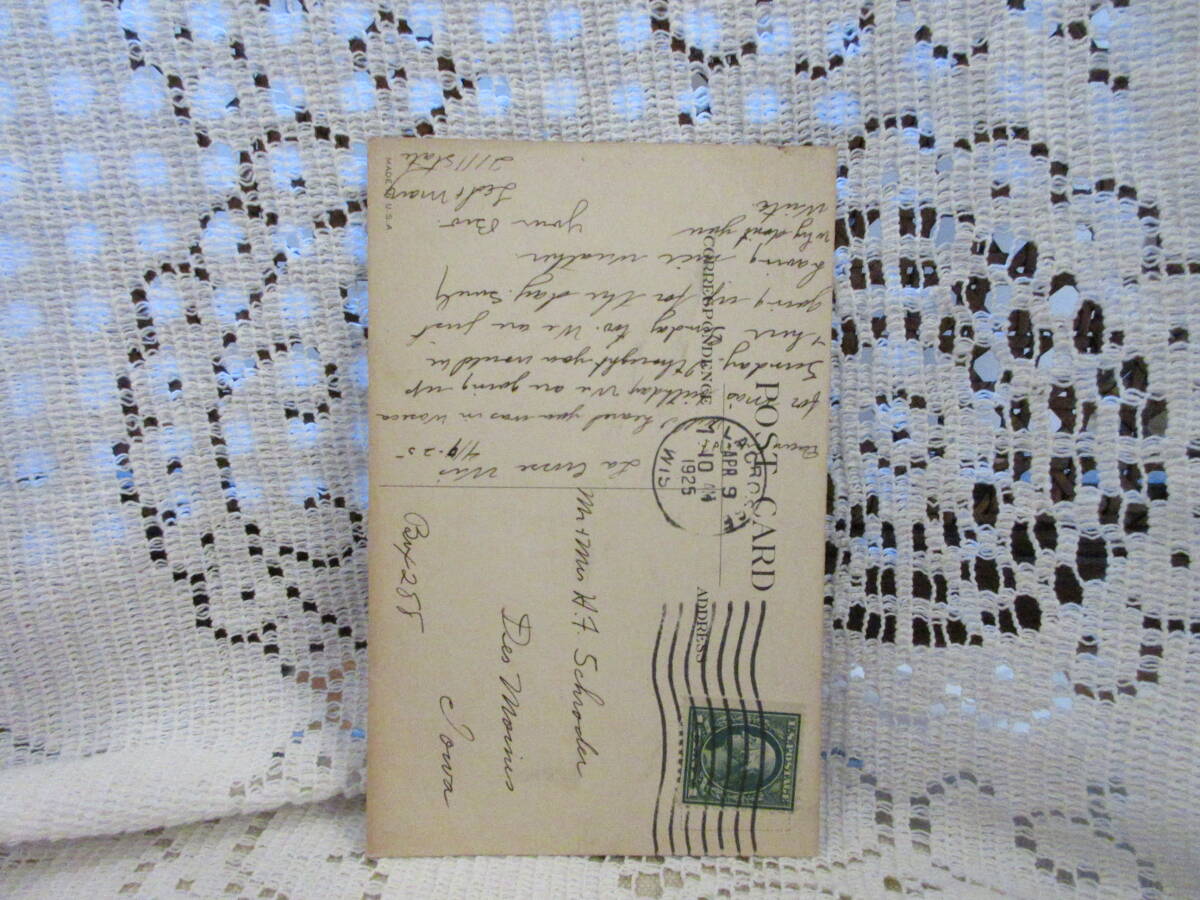 POST CARD
CORRESPONDENCE
ADDRESS
MADE IN U.S.A
LA CROSSE
APR 9
10 AM
1925
WIS
U.S. POSTAGE
La Crosse Wis
4/9-25
I heard you was in Waseca
for mas birthday We are going up
Sunday. I thought you would be
there Sunday too. We are just
going up for the day. Surely
having nice weather
Why don't you
Write
Your Bro.
Ted & Mary
2111 State
Mr + Mrs H. F. Schroder
Des Moines
Iowa
Box 288